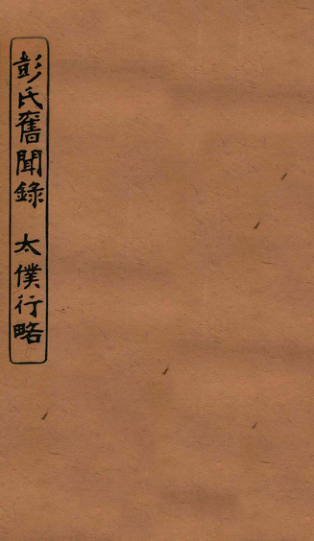 彭氏舊聞錄 太僕行略